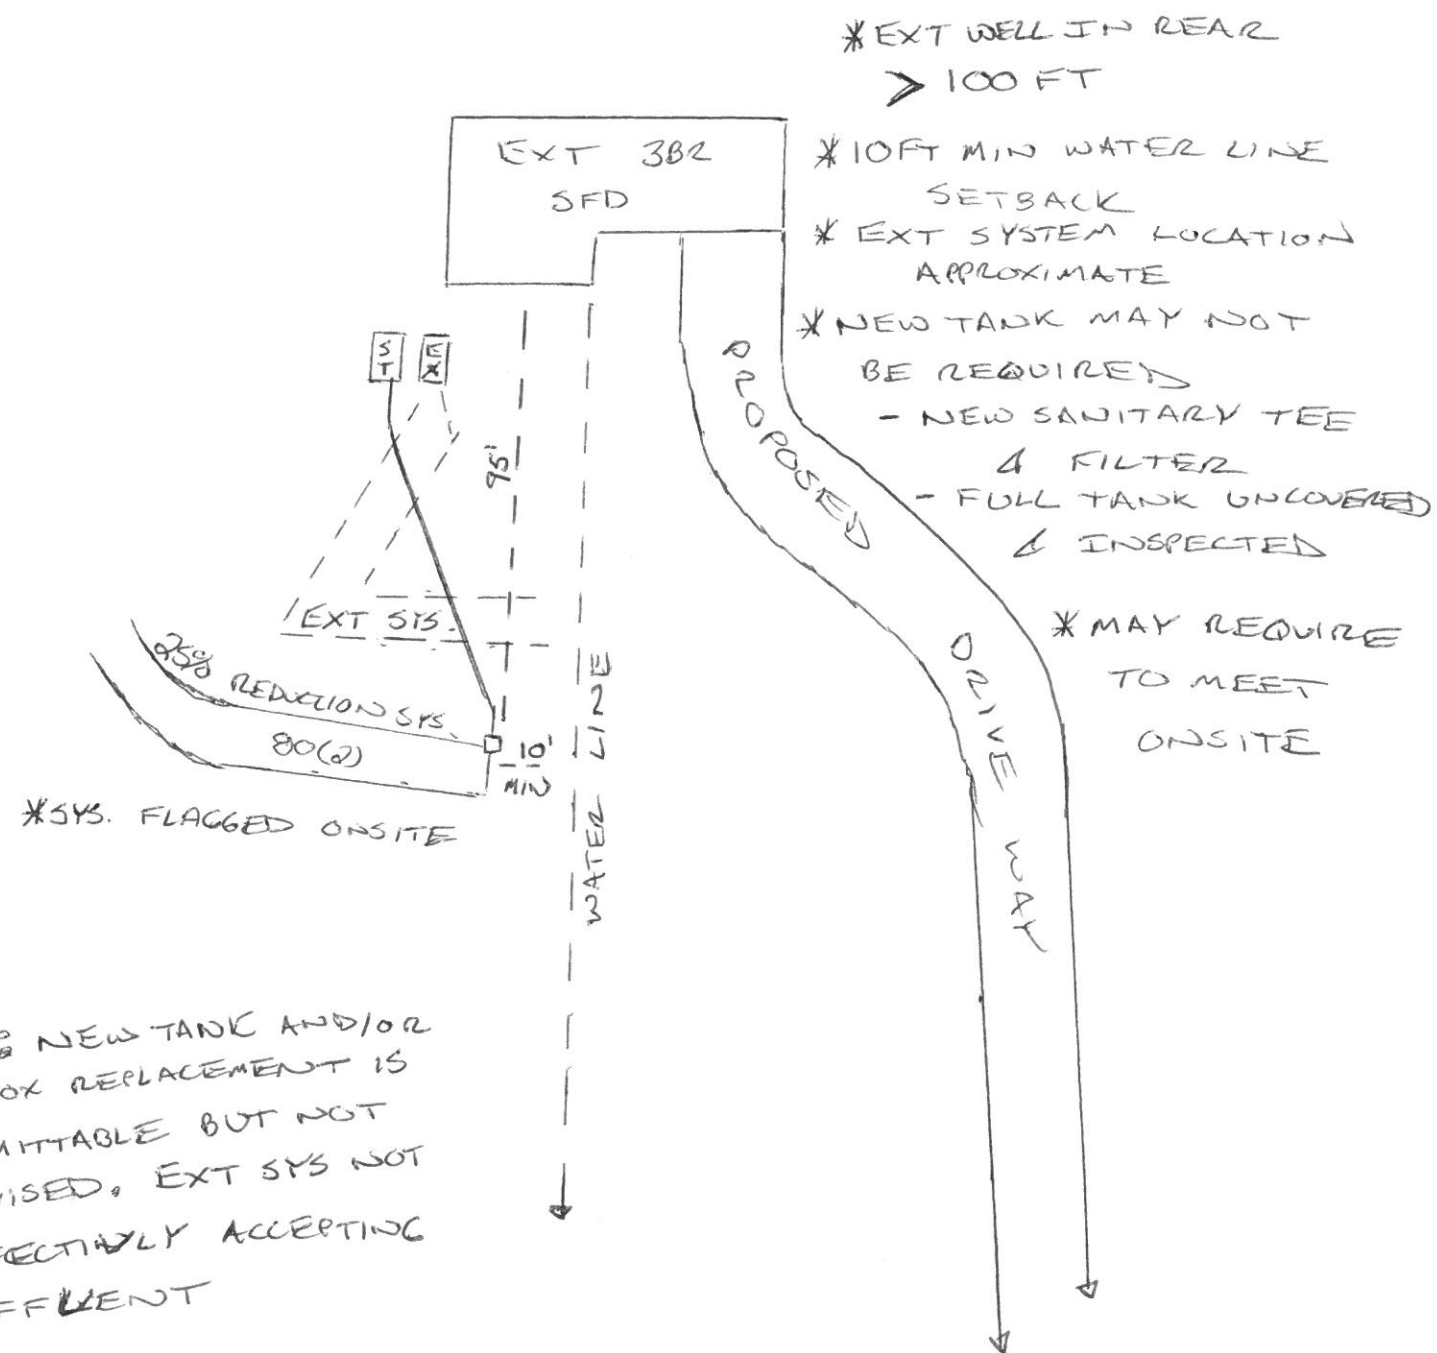 *EXT WELL IN REAR
> 100 FT
*10FT MIN WATER LINE
SETBACK
* EXT SYSTEM LOCATION
APPROXIMATE
*NEW TANK MAY NOT
BE REQUIRED
- NEW SANITARY TEE
& FILTER
- FULL TANK UNCOVERED
& INSPECTED
*MAY REQUIRE
TO MEET
ONSITE
EXT 3BR
SFD
ST
EX
95'
PROPOSED
DRIVE WAY
EXT SYS.
25% REDUCTION SYS.
80(2)
10'
MIN
WATER LINE
*SYS. FLAGGED ONSITE
: NEW TANK AND/OR
OX REPLACEMENT IS
MITTABLE BUT NOT
VISED. EXT SYS NOT
FECTIVLY ACCEPTING
EFFLUENT